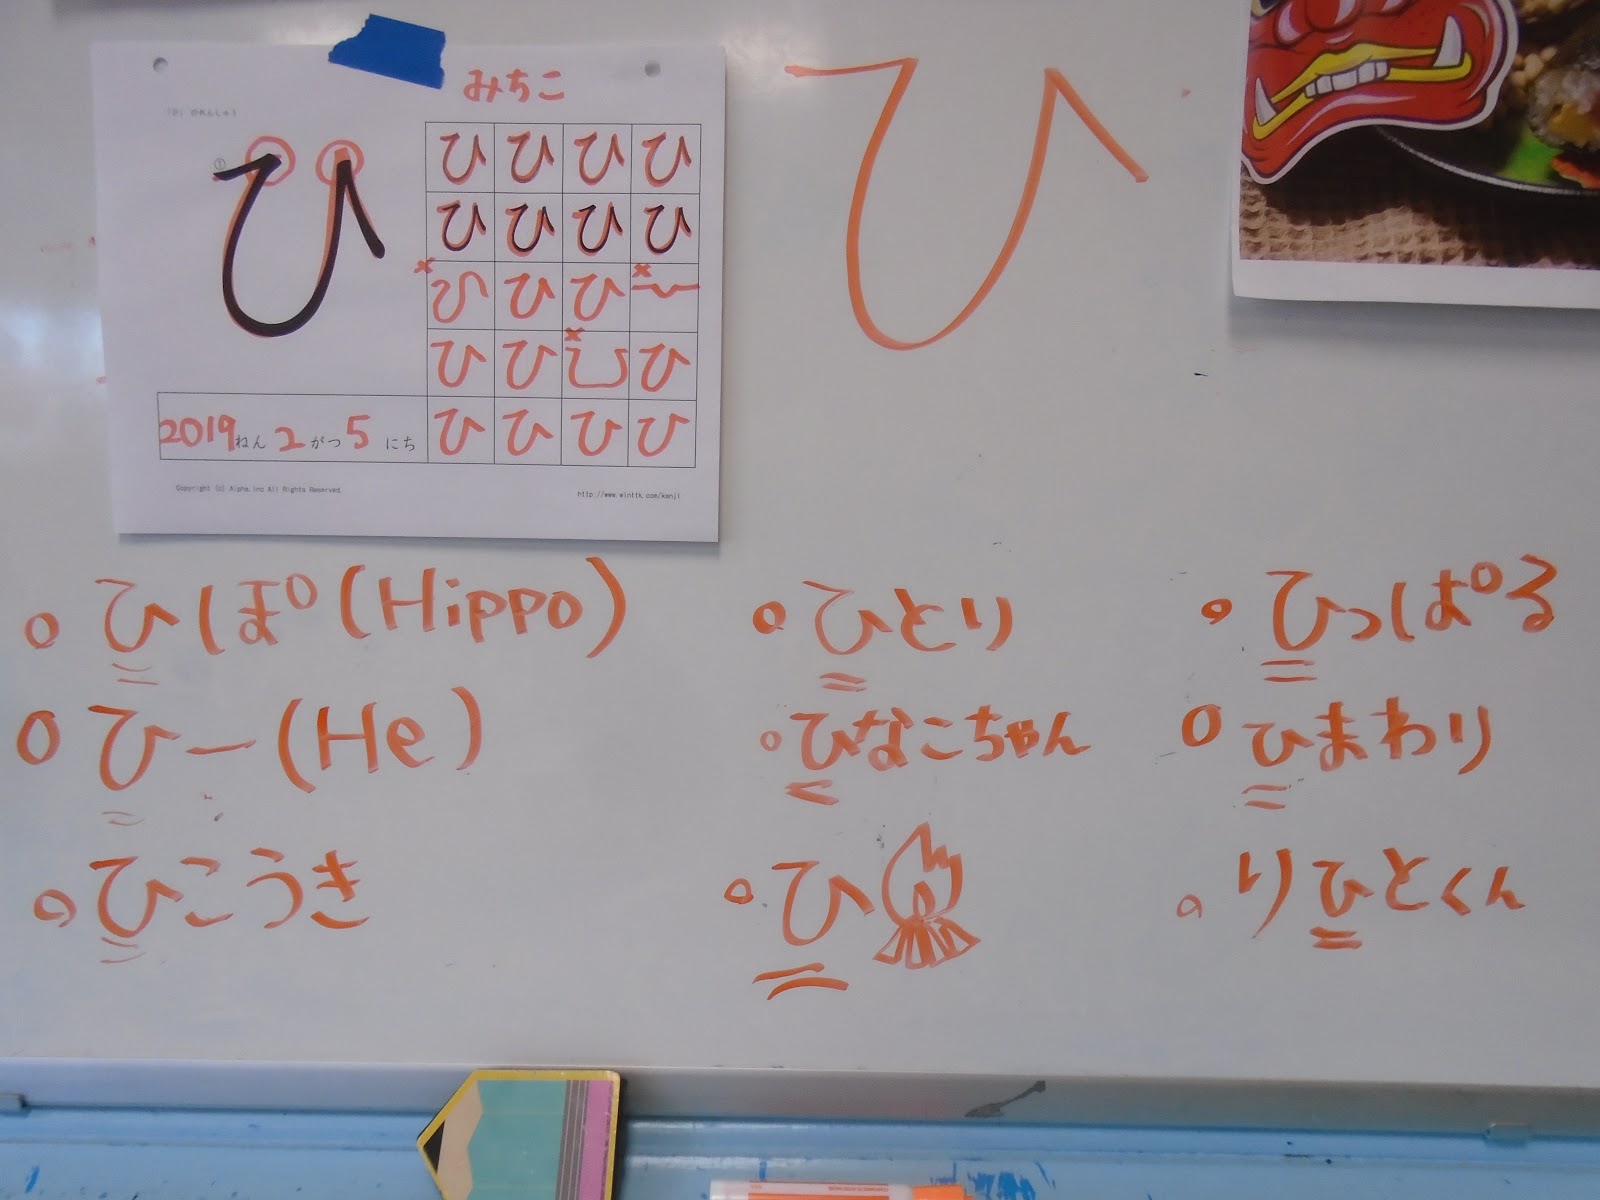 みちこ
「ひ」のれんしゅう
①
ひ
ひ ひ ひ ひ
ひ ひ ひ ひ
ひ ひ ひ
ひ ひ ひ
ひ ひ ひ ひ
2019ねん 2がつ5にち
Copyright (c) Alpha.inc All Rights Reserved.
http://www.winttk.com/kanji
ひ
ひしぽ(Hippo)
ひー(He)
ひこうき
ひとり
ひなこちゃん
ひ
ひっしぱる
ひまわり
りひとくん